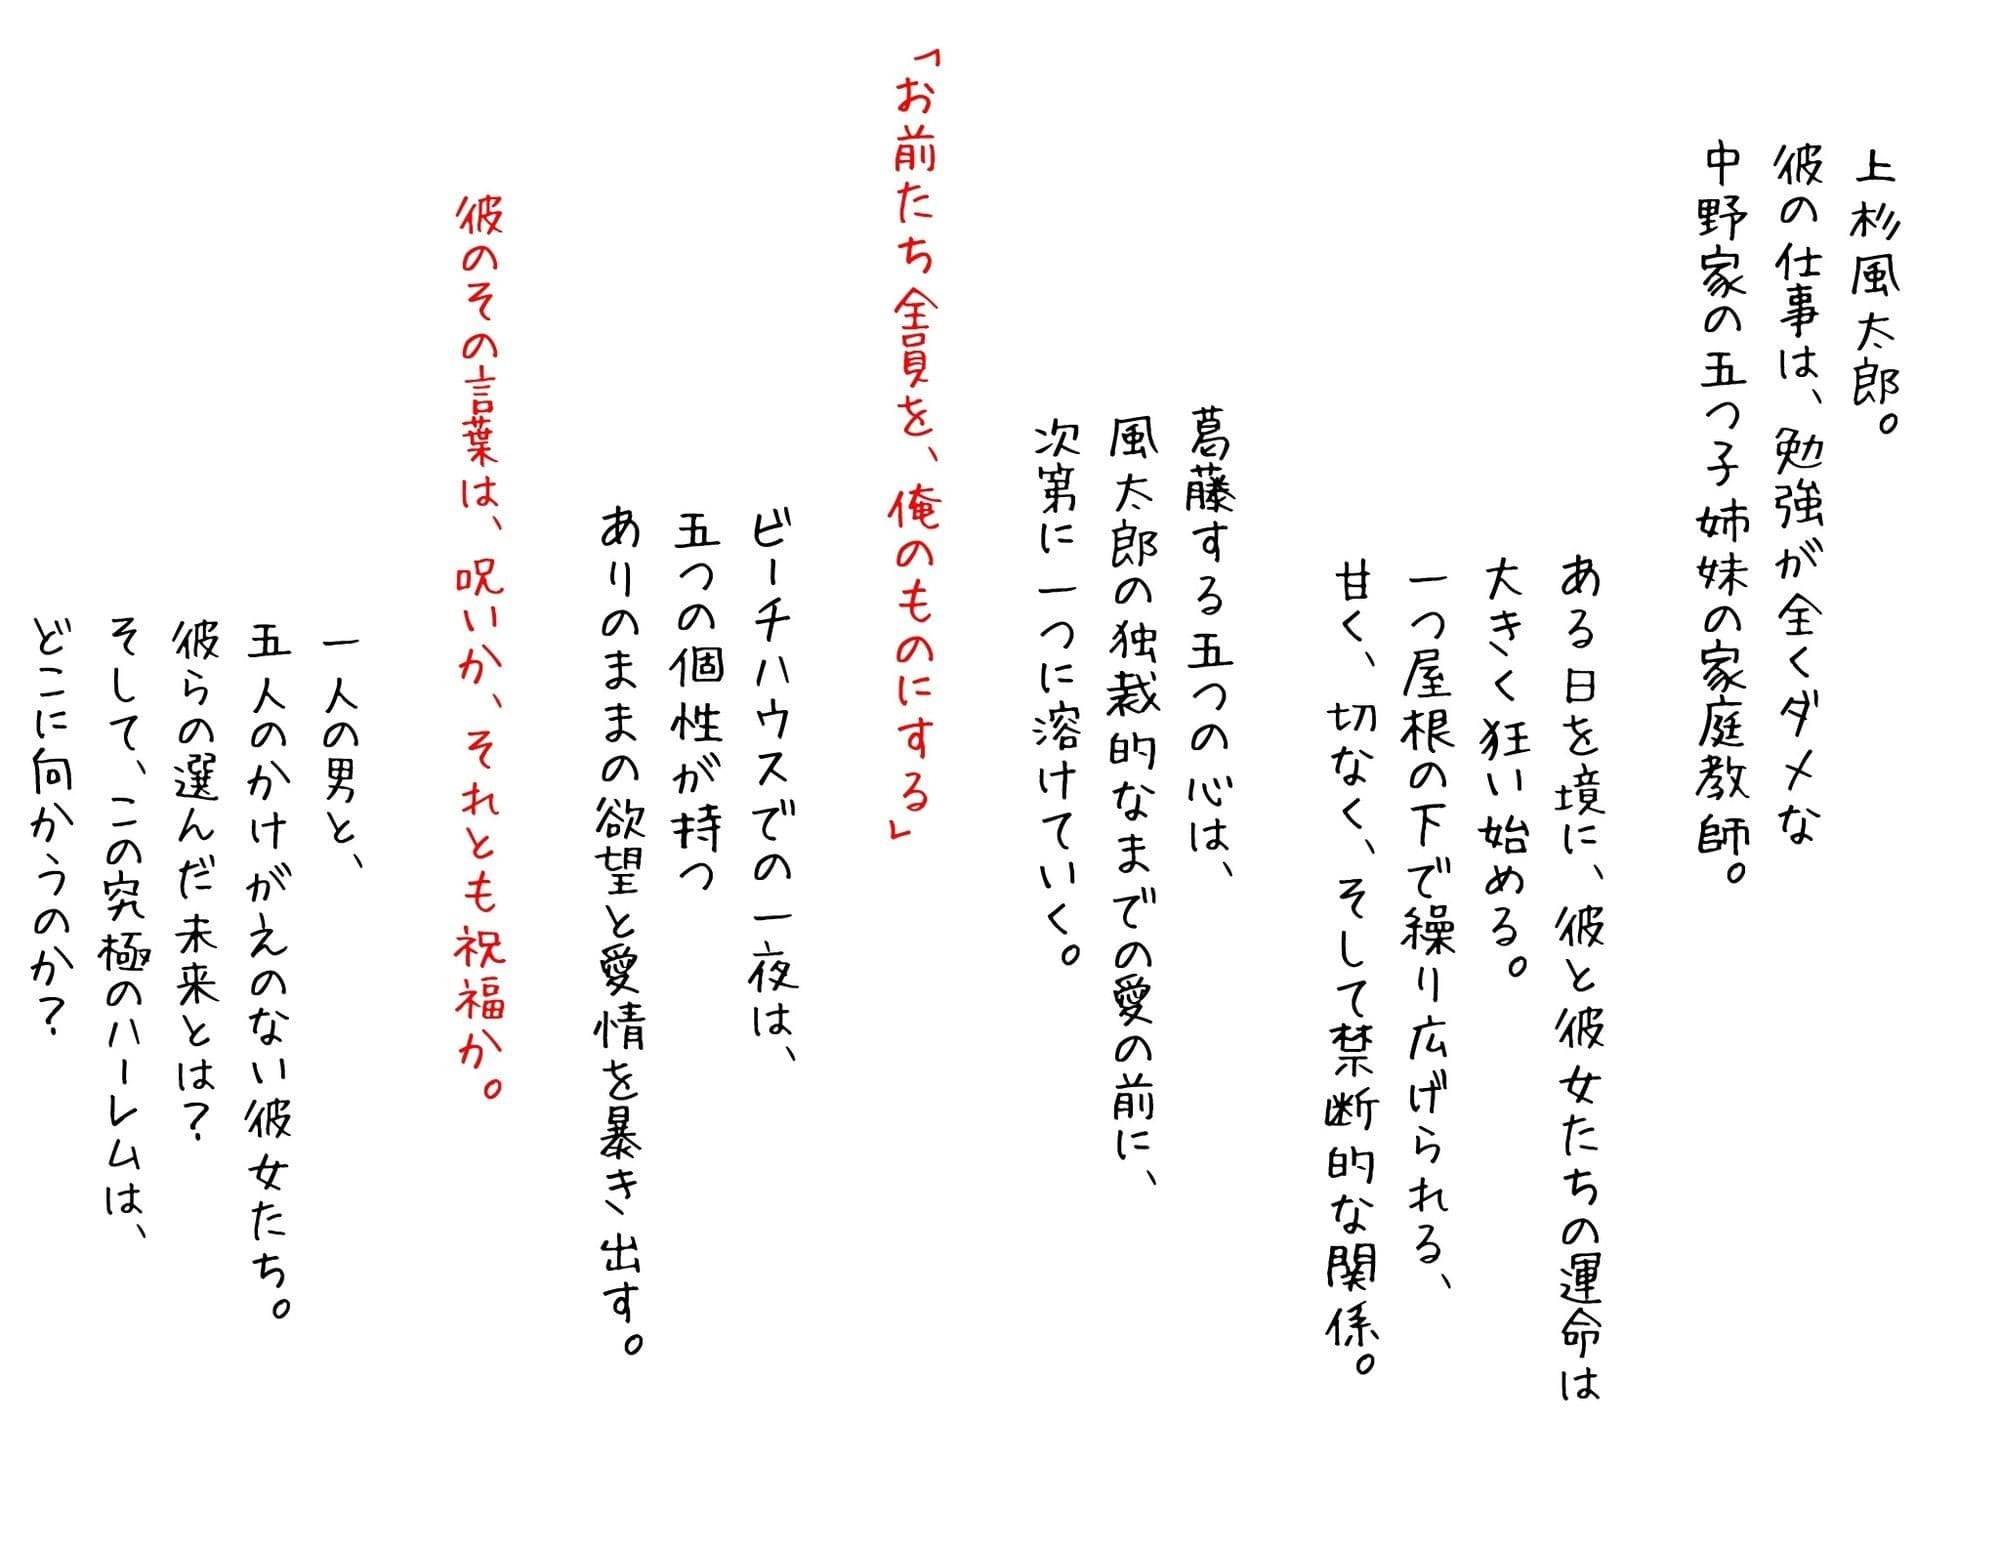 上杉風太郎。
彼の仕事は、勉強が全くダメな
中野家の五つ子姉妹の家庭教師。
ある日を境に、彼と彼女たちの運命は
大きく狂い始める。
一つ屋根の下で繰り広げられる、
甘く、切なく、そして禁断的な関係。
葛藤する五つの心は、
風太郎の独裁的なまでの愛の前に、
次第に一つに溶けていく。
「お前たち全員を、俺のものにする」
ビーチハウスでの一夜は、
五つの個性が持つ
ありのままの欲望と愛情を暴き出す。
彼のその言葉は、呪いか、それとも祝福か。
一人の男と、
五人のかけがえのない彼女たち。
彼らの選んだ未来とは?
そして、この究極のハーレムは、
どこに向かうのか?